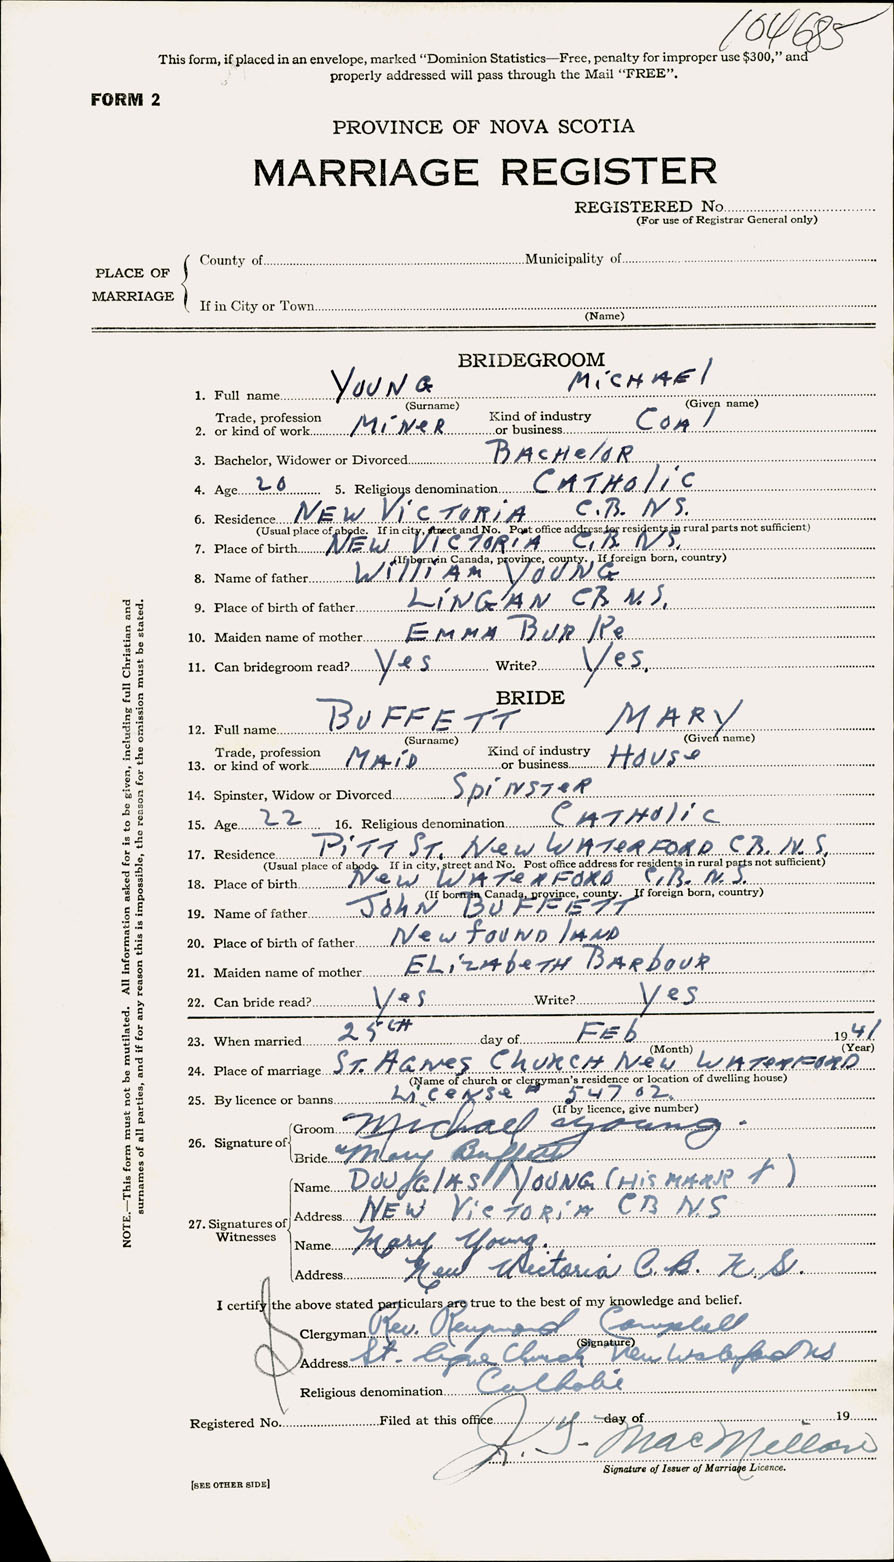 104685
This form, if placed in an envelope, marked “Dominion Statistics—Free, penalty for improper use $300,” and
properly addressed will pass through the Mail “FREE”.
FORM 2
PROVINCE OF NOVA SCOTIA
MARRIAGE REGISTER
REGISTERED No.
(For use of Registrar General only)
PLACE OF MARRIAGE
County of Municipality of
If in City or Town
(Name)
BRIDEGROOM
1. Full name YOUNG MiCHAEl
(Surname) (Given name)
2. Trade, profession or kind of work MiNER Kind of industry or business COAl
3. Bachelor, Widower or Divorced BACHelOR
4. Age 20 5. Religious denomination CATHOliC
6. Residence NEW VICTORIA C.B. NS.
(Usual place of abode. If in city, street and No. Post office address for residents in rural parts not sufficient)
7. Place of birth NEW VICTORIA C.B. NS.
(If born in Canada, province, county. If foreign born, country)
8. Name of father WilliAM YOUNG
9. Place of birth of father LiNGAN CB N.S.
10. Maiden name of mother EMMA BURKe
11. Can bridegroom read? Yes Write? Yes.
BRIDE
12. Full name BUFFETT MARY
(Surname) (Given name)
13. Trade, profession or kind of work MAiD Kind of industry or business HOUSe
14. Spinster, Widow or Divorced SpiNSTER
15. Age 22 16. Religious denomination CATHOliC
17. Residence PiTT ST. New WATERFORD CB. N.S.
(Usual place of abode. If in city, street and No. Post office address for residents in rural parts not sufficient)
18. Place of birth New WATERFORD C.B. N.S.
(If born in Canada, province, county. If foreign born, country)
19. Name of father JOHN BUFFETT
20. Place of birth of father NewfOUNDlAND
21. Maiden name of mother ELizAbeTH BARbOUR
22. Can bride read? Yes Write? Yes
23. When married 25th day of FEb 1941
(Month) (Year)
24. Place of marriage ST. AGNES CHURCH New WATERFORD
(Name of church or clergyman's residence or location of dwelling house)
25. By licence or banns License # 54702
(If by licence, give number)
26. Signature of Groom Michael Young.
Bride Mary Buffett
27. Signatures of Witnesses
Name DOUGlAS YOUNG (HIS MARK †)
Address NEW VICTORIA CB N.S
Name Mary Young.
Address New Victoria C.B. N.S.
I certify the above stated particulars are true to the best of my knowledge and belief.
Clergyman Rev. Raymond Campbell
(Signature)
Address St. Agnes Church New Waterford NS
Religious denomination Catholic
Registered No. Filed at this office day of 19
MacMillan
Signature of Issuer of Marriage Licence.
[SEE OTHER SIDE]
NOTE.—This form must not be mutilated. All Information asked for is to be given, including full Christian and
surnames of all parties, and if for any reason this is impossible, the reason for the omission must be stated.